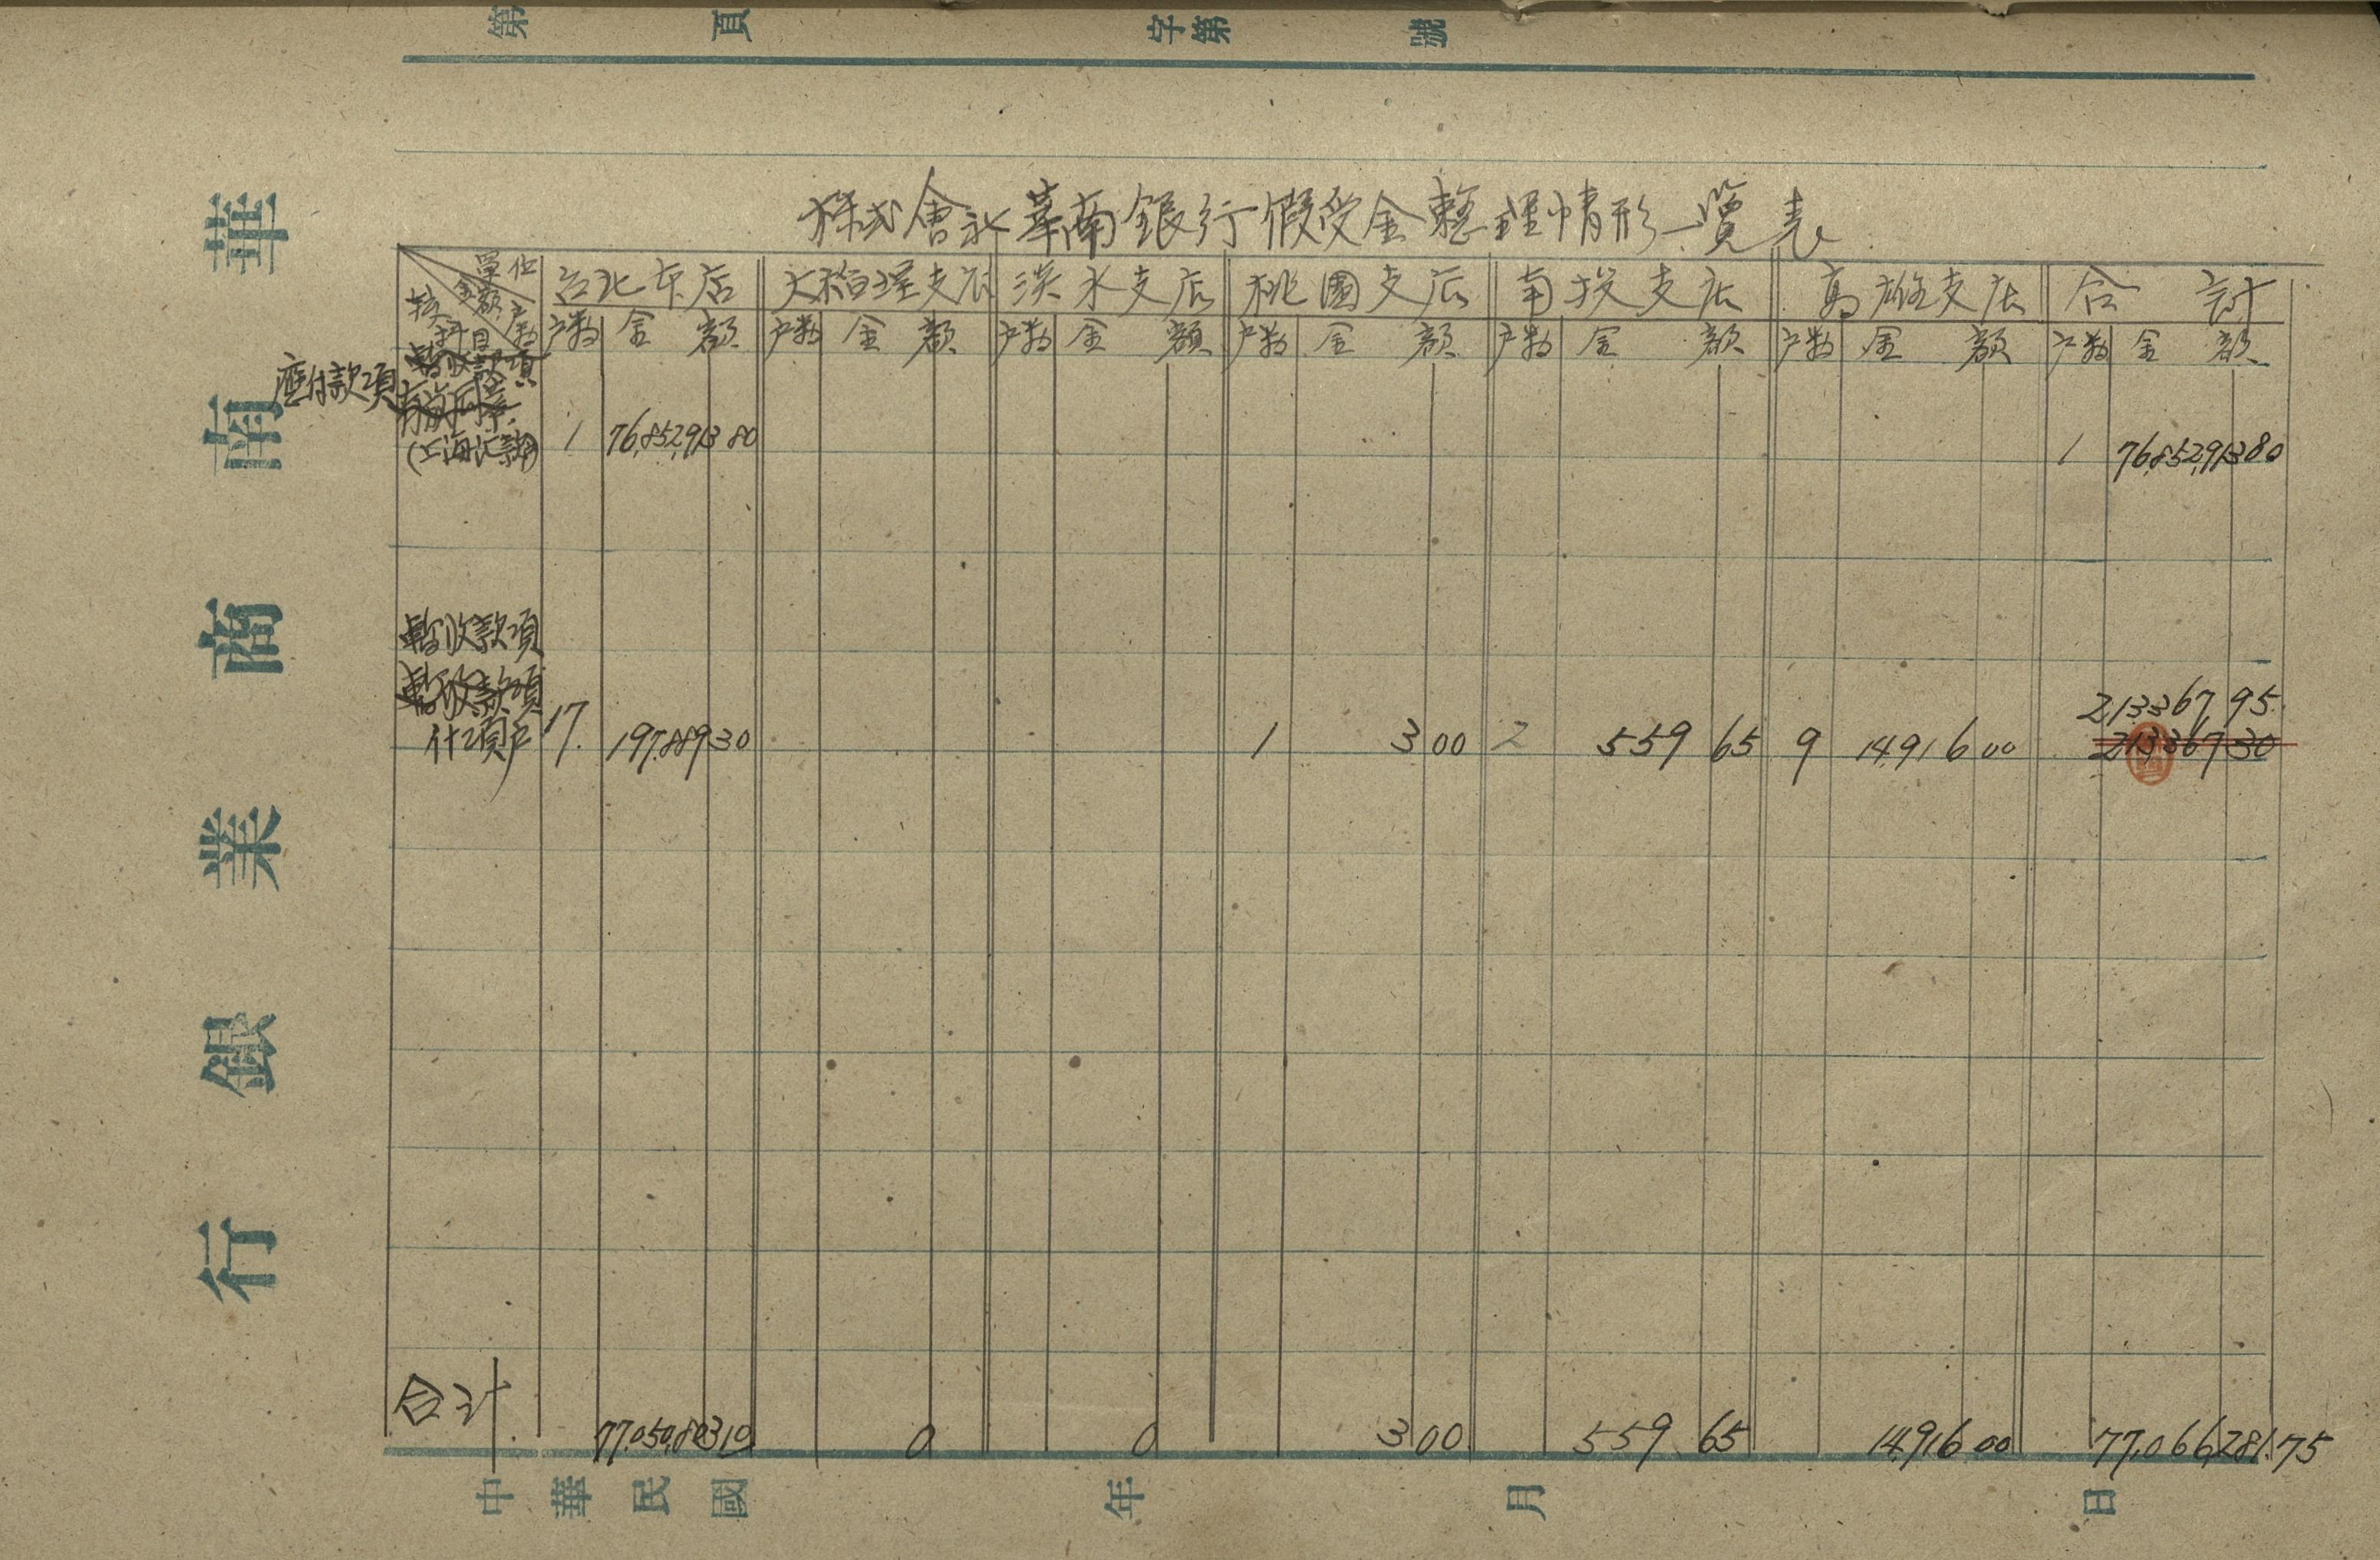 第 頁 字第 號
華南商業銀行
株式會社華南銀行假受金整理情形一覽表
單位 金額 戶數 科目
台北本店 大稻埕支店 淡水支店 桃園支店 南投支店 高雄支店 合計
戶數 金額 戶數 金額 戶數 金額 戶數 金額 戶數 金額 戶數 金額 戶數 金額
暫收款項
應付款項
(上海汇款) 1 76,852,913 80 1 76,852,913 80
暫收款項
暫收款項 213367 95
什項戶 17 197,889 30 1 3 00 2 559 65 9 14,916 00 213367 30
合計 77,050,803 10 0 0 3 00 559 65 14,916 00 77,066,281.75
中華民國 年 月 日